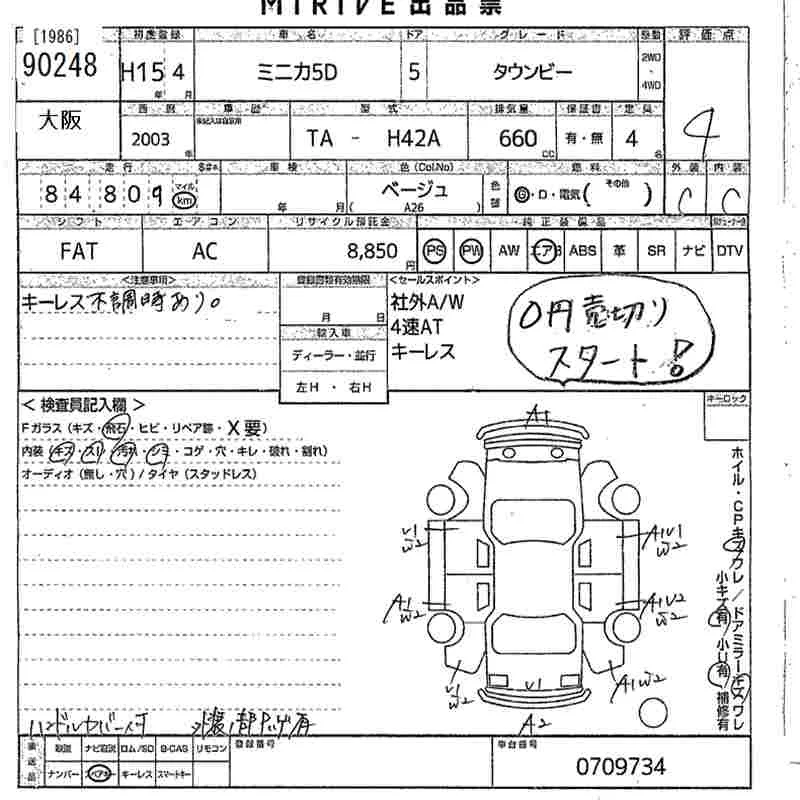 MIRIVE出品票
[1986]
90248
初度登録 車名 ドア グレード 駆動 評価点
H15 4 ミニカ5D 5 タウンビー 2WD 4WD
年 月
4
大阪
西暦 車歴 型式 排気量 保証書 定員
2003 TA - H42A 660 有・無 4
年 CC 名
走行 車検 色(Col.No) 燃料 外装 内装
84809 マイル km 年 月 ベージュ (A26) 色替 G・D・電気( その他 ) C C
シフト エアコン リサイクル預託金 純正装備品
FAT AC 8,850 円 PS PW AW エアB ABS 革 SR ナビ DTV
<注意事項>
キーレス不調時あり。
登録書類有効期限
月 日
輸入車
ディーラー・並行
左H・右H
<セールスポイント>
社外A/W
4速AT
キーレス
0円売切り
スタート!
<検査員記入欄>
Fガラス(キズ・飛石・ヒビ・リペア跡・X要)
内装(キズ・スリ・汚れ・シミ・コゲ・穴・キレ・破れ・割れ)
オーディオ(無し・穴)/タイヤ(スタッドレス)
キーロック
ホイル・CPキズワレ/ドアミラーキズワレ
小キズ有 小U有 補修有
A1
U1
W2
A1U1
W2
A1
W2
A1U2
W2
U1
W2
U1
A1W2
A2
ハンドルカバー付
後送品 取説 ナビ取説 ロム/SD B-CAS リモコン
ナンバー スペアキー キーレス スマートキー
登録番号
車台番号
0709734